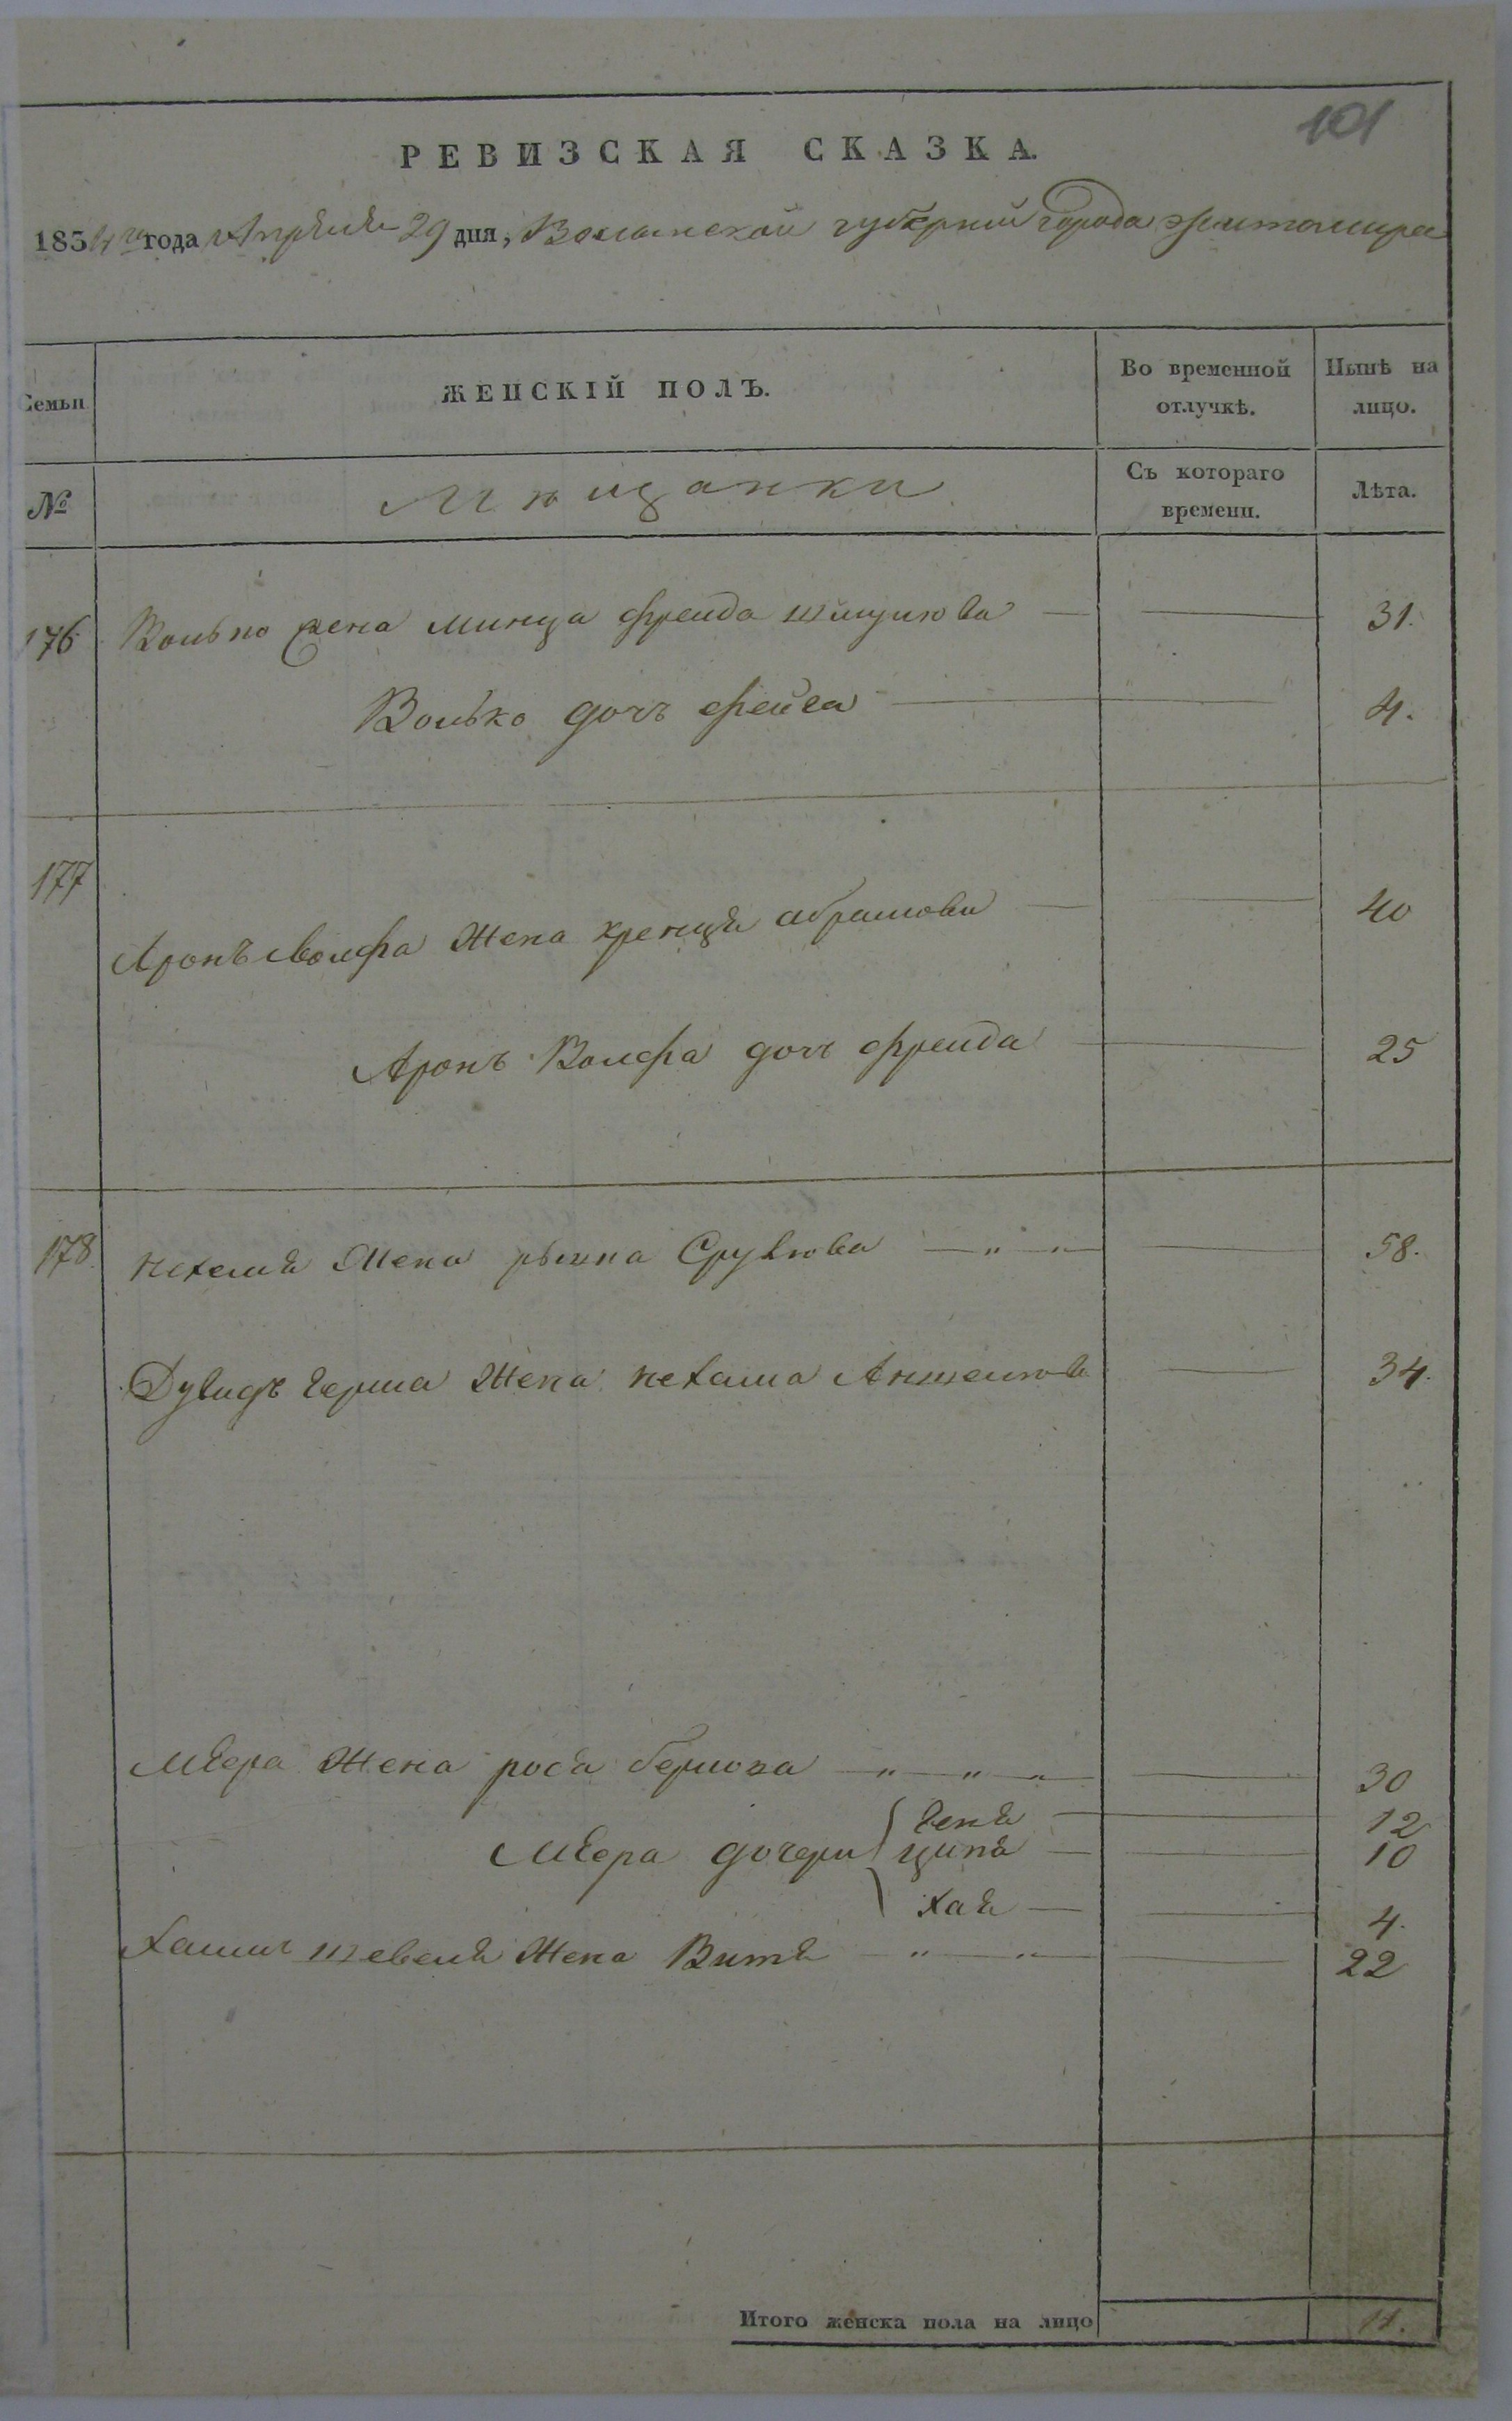 101
РЕВИЗСКАЯ СКАЗКА.
1854 го года Апреля 29 дня, Волынской губернии города Житомира
Семьи
ЖЕНСКІЙ ПОЛЪ.
Во временной отлучкѣ.
Нынѣ на лицо.
№
Мещанки
Съ котораго времени.
Лѣта.
176 Волько жена Минца Фрейда 31.
Волько дочь Фейга 4.
177
Аронъ Волфа Жена Абрамова 40
Аронъ Волфа дочь Фрейда 25
178 Нехемя Жена Срулюва 58.
Дувидъ Герша Жена Нехама 34.
Меера Жена Рося Беркова 30
Геня 12
Меера дочери Ципа 10
Хая 4.
Жена Витя 22
Итого женска пола на лицо 11.